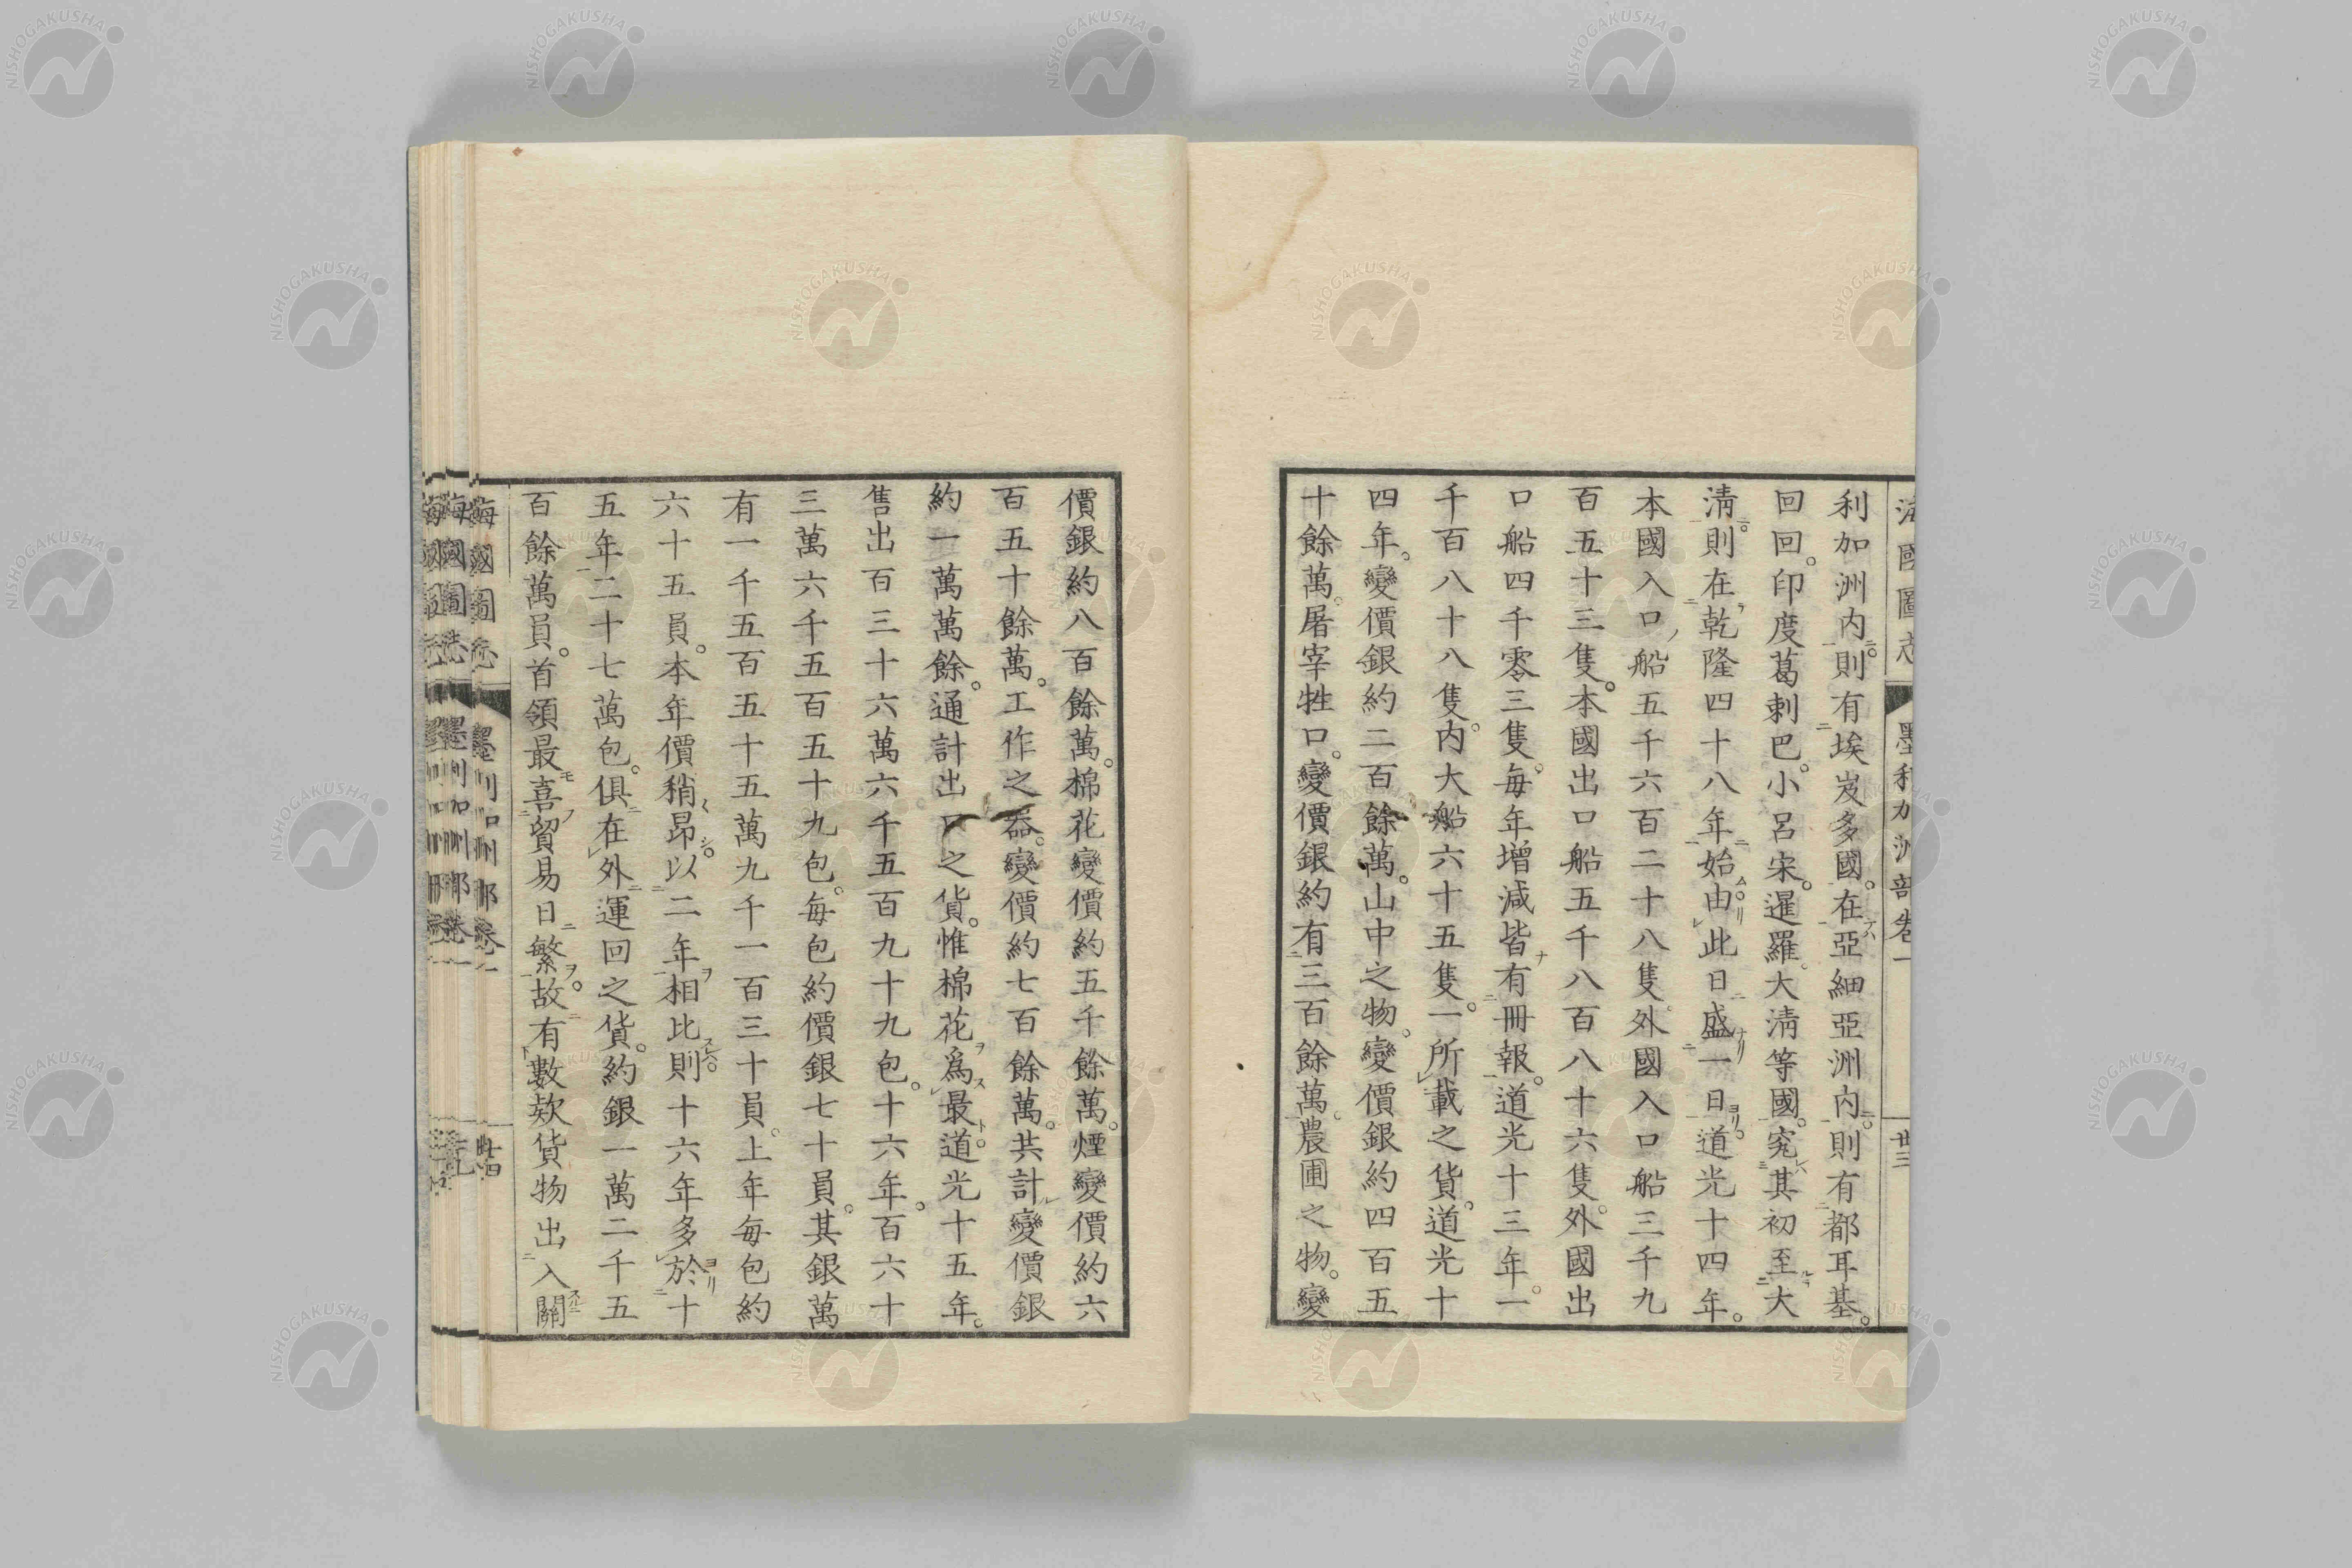 海國圖志 墨利加洲部卷一 廿三
利加洲内則有埃岌多國。在亞細亞洲内。則有都耳基。
回回。印度葛剌巴。小呂宋。暹羅。大清等國。究其初至大
清。則在乾隆四十八年。始由此日盛一日。道光十四年。
本國入口船五千六百二十八隻。外國入口船三千九
百五十三隻。本國出口船五千八百八十六隻。外國出
口船四千零三隻。每年增減皆有冊報。道光十三年。一
千百八十八隻。内大船六十五隻。一所載之貨。道光十
四年。變價銀約二百餘萬。山中之物。變價銀約四百五
十餘萬。屠宰牲口。變價銀約有三百餘萬。農圃之物。變
價銀約八百餘萬。棉花變價約五千餘萬。煙變價約六
百五十餘萬。工作之器。變價約七百餘萬。共計變價銀
約一萬萬餘。通計出口之貨。惟棉花爲最。道光十五年。
售出百三十六萬六千五百九十九包。十六年。百六十
三萬六千五百五十九包。每包約價銀七十員。其銀萬
有一千五百五十五萬九千一百三十員。上年每包約
六十五員。本年價稍昂。以二年相比。則十六年多於十
五年二十七萬包。俱在外運回之貨。約銀一萬二千五
百餘萬員。首領最喜貿易日繁。故有數款貨物出入關
海國圖志 墨利加洲部卷一 廿四